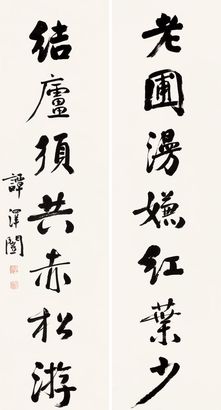 老圃漫嫌红葉少
結廬須共赤松游
譚澤闓